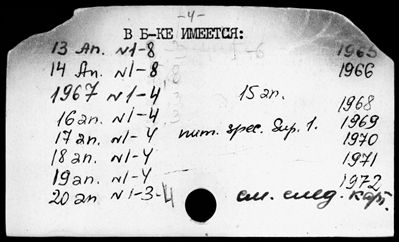 -4-
В Б-КЕ ИМЕЕТСЯ:
13 Ап. N1-8 1965
14 Ап. N1-8 1966
1967 N1-4 15 ап.
16 ап. N1-4 1968
17 ап. N1-4 num. spec. Sup. 1. 1969
18 ап. N1-4 1970
19 ап. N1-4 1971
20 ап N1-3-4 1972
см. след. карт.